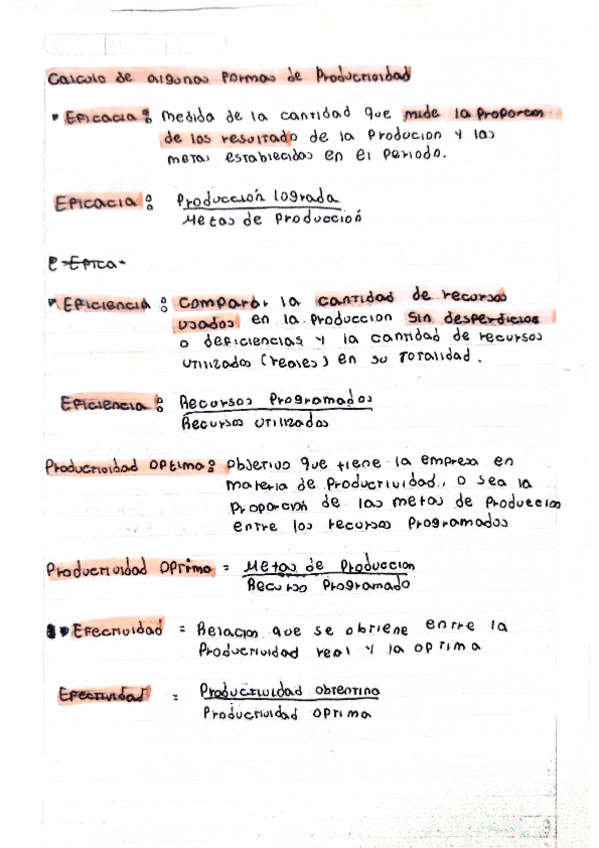 Calculo de algunas formas de Productividad
• Eficacia: Medida de la cantidad que mide la proporcion
de los resultado de la Producion y las
metas establecidas en el periodo.
Eficacia: Producción lograda
Metas de Producción
E Efica-
• Eficiencia: Comparar la cantidad de recursos
usados en la Produccion sin desperdicios
o deficiencias y la cantidad de recursos
utilizados (reales) en su totalidad.
Eficiencia: Recursos Programados
Recursos utilizados
Productividad optima: objetivo que tiene la empresa en
materia de Productividad, o sea la
proporcion de las metas de Produccion
entre los recursos Programados
Productividad optima = Metas de Produccion
Recurso Programado
• Efectividad = Relacion que se obtiene entre la
Productividad real y la optima
Efectividad = Productividad obtenina
Productividad optima